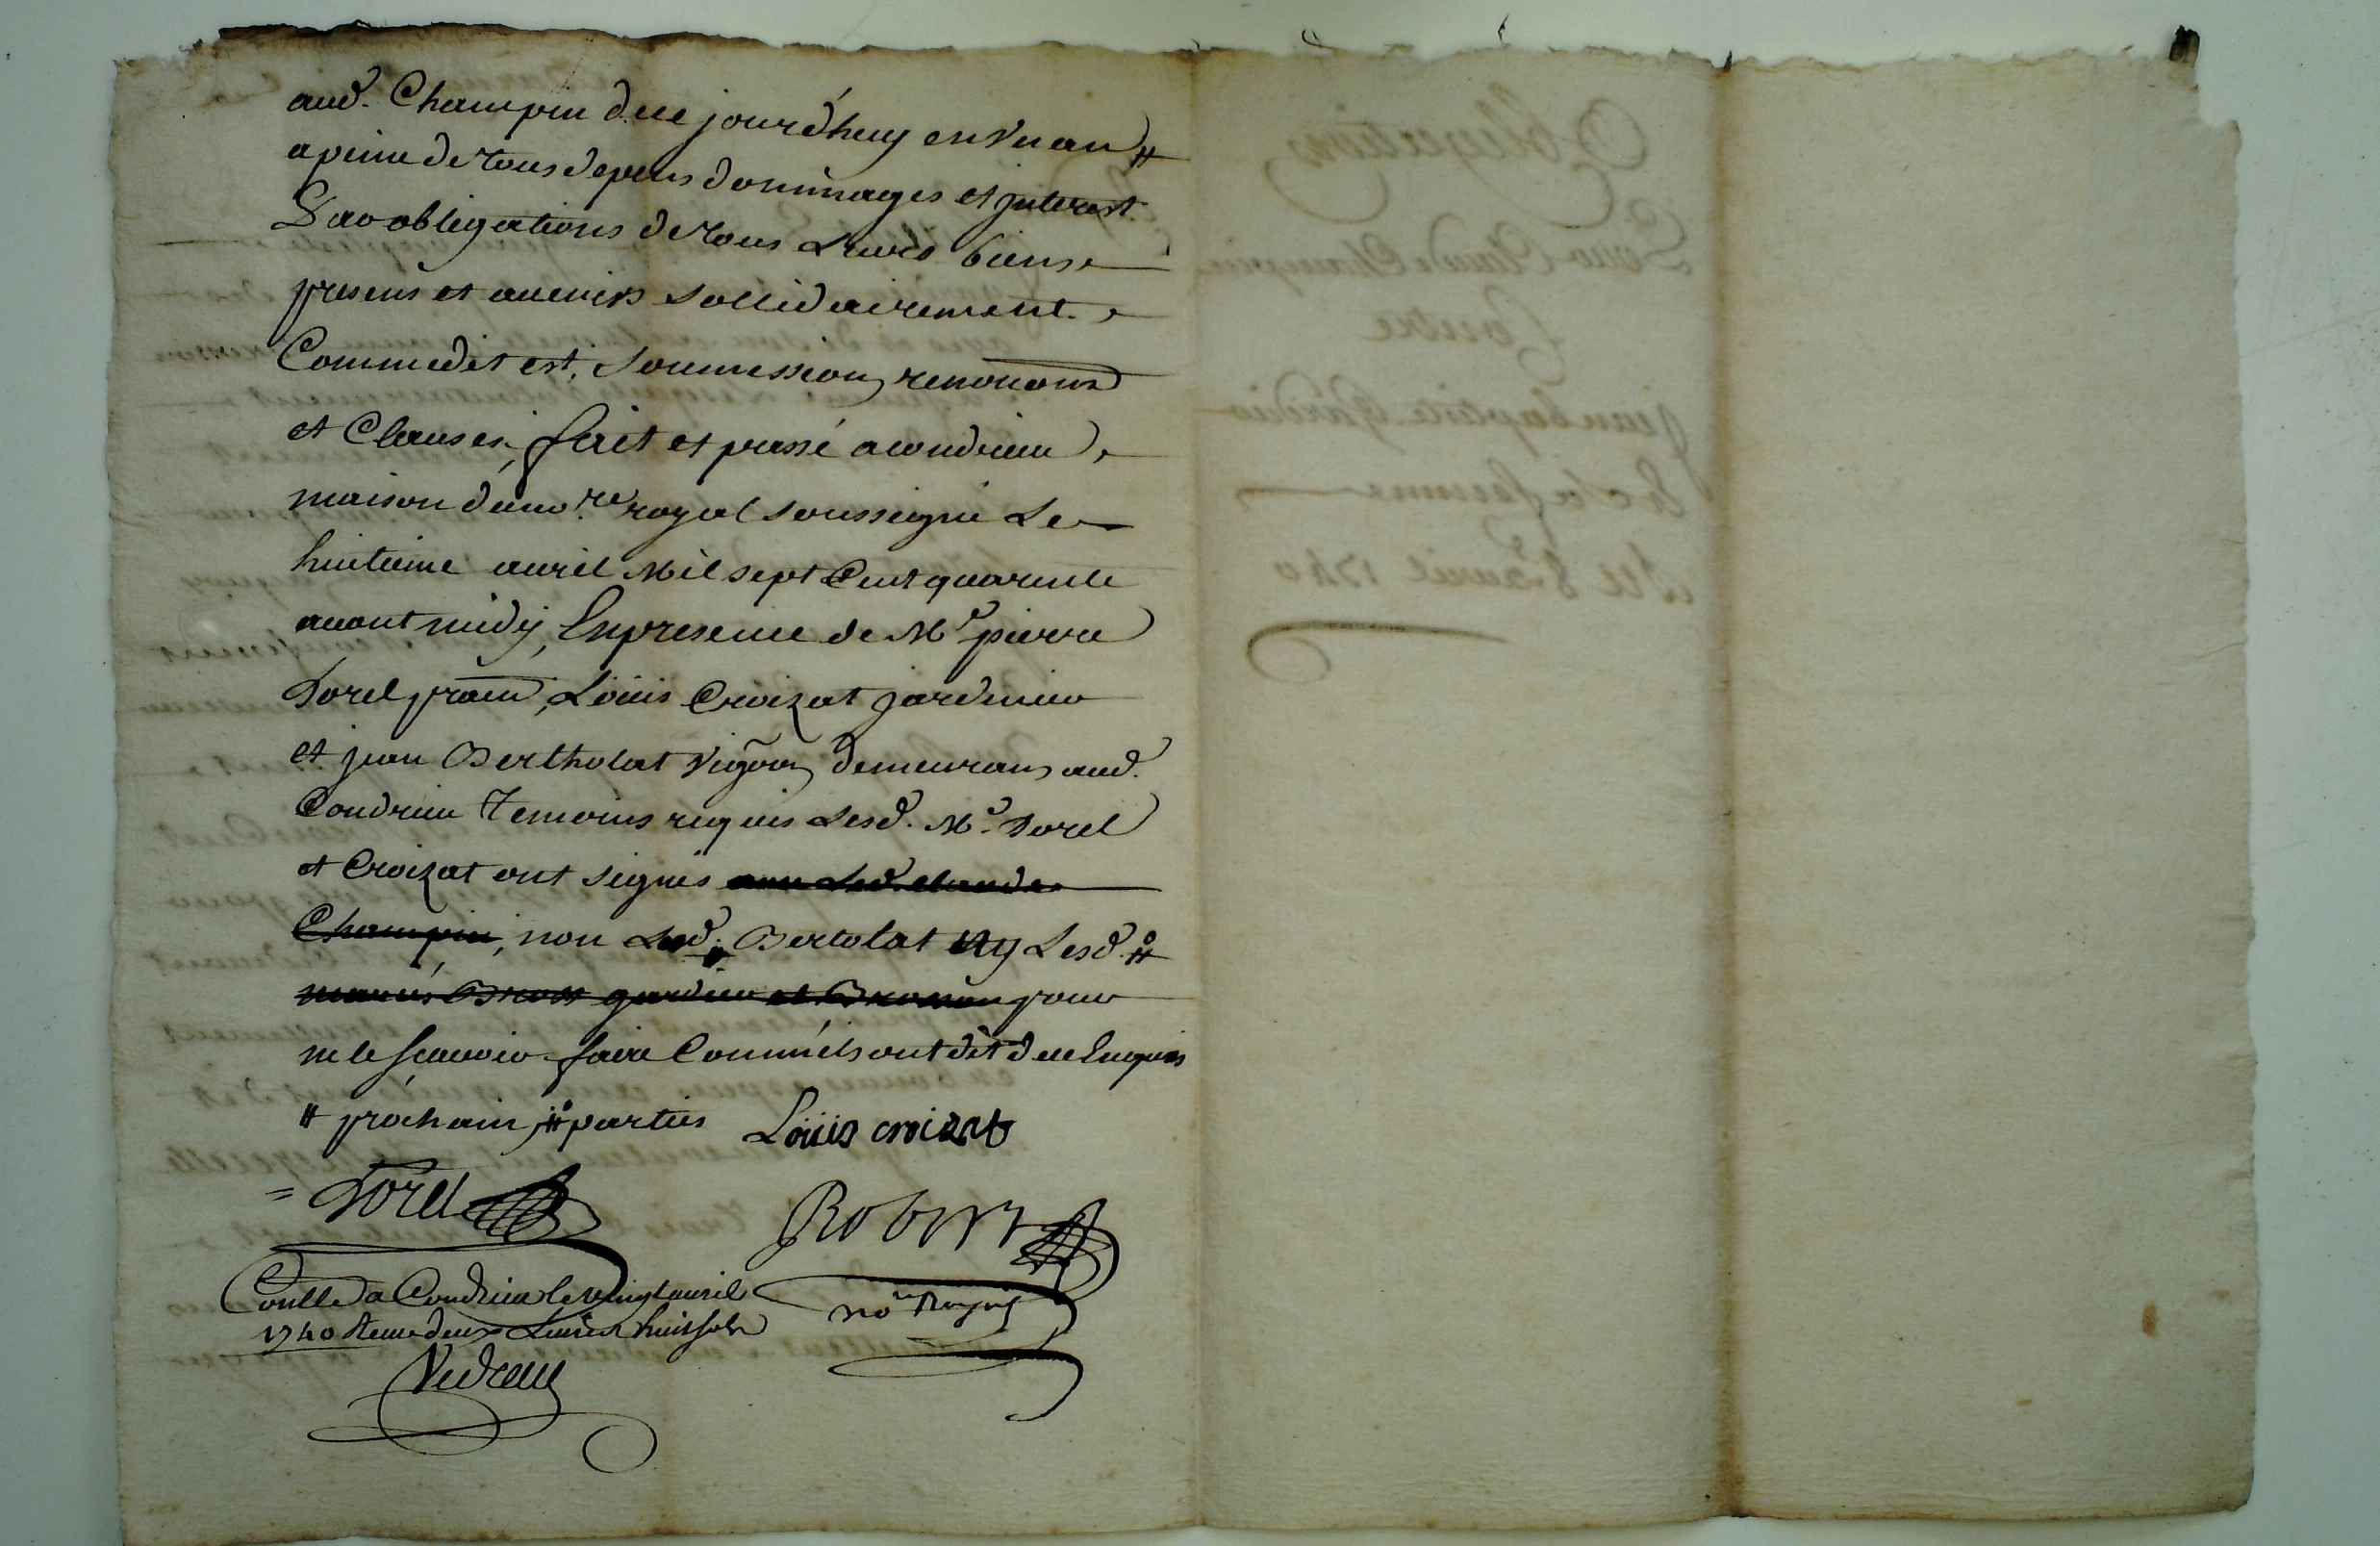 aud. Champin de ce jourd'huy en un an #
a peine de tous depens dommages et interest
Par obligations de tous Leurs biens
presens et avenirs sollidairement
Comme dit est, soumission, renonons
et Clauses, fait et passé a condrieu,
maison du no.re royal soussigné Le
huitieme avril Mil sept Cent quarente
avant midy, En presence de Me pierre
Dorel pratn, Loüis Croizat jardinier
et jean Bertholat Vigñon demeurans aud.
Condrieu Temoins requis Lesd. Me. Dorel
et Croizat ont signés
Champin, non Led. Bertolat ny Lesd. #
pour
ne le sçavoir faire Comm'ils ont dit de ce Enquis
# prochain, # parties Loüis croizat
= Dorel
Robert
no.re Royal
Conllé a Condrieu le vingt avril
1740 Reçu deux Livres huit sols
Vedreau
Obligation
Pour Claude Champin
Contre
jean baptiste Gardier
& sa femme
Du 8e avril 1740